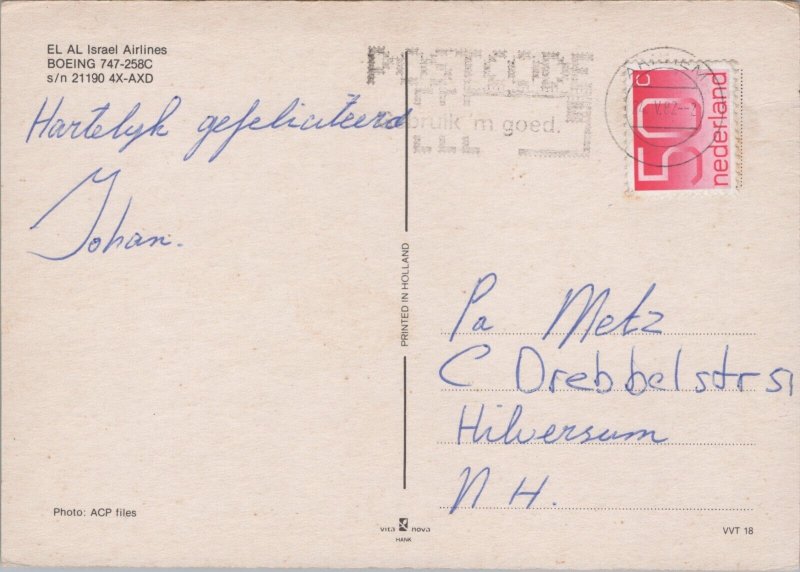 EL AL Israel Airlines
BOEING 747-258C
s/n 21190 4X-AXD
Hartelijk gefeliciteerd
Johan.
POSTCODE
bruik 'm goed.
ARNHEM
50 C
nederland
PRINTED IN HOLLAND
Pa Metz
C Drebbelstr 51
Hilversum
N H.
Photo: ACP files
vita nova
HANK
VVT 18